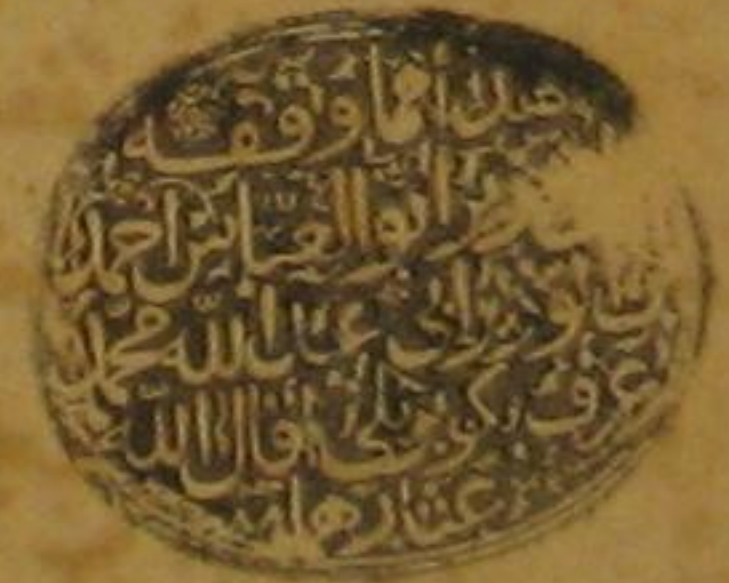 هذا مما وقفه
ابو العباس احمد
بن الوزير ابي عبد الله محمد
عرف بكوبريلي اقال الله
عثارهما